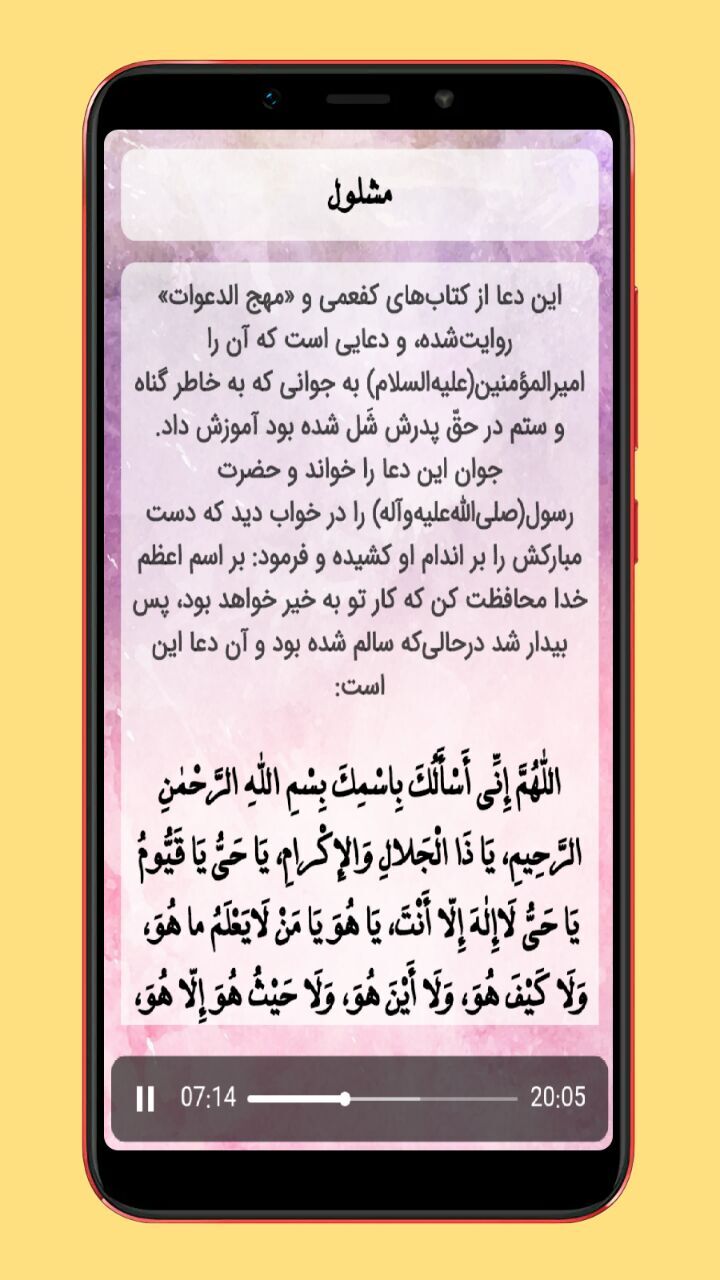 مشلول
این دعا از کتاب‌های کفعمی و «مهج الدعوات»
روایت‌شده، و دعایی است که آن را
امیرالمؤمنین(علیه‌السلام) به جوانی که به خاطر گناه
و ستم در حقّ پدرش شَل شده بود آموزش داد.
جوان این دعا را خواند و حضرت
رسول(صلی‌الله‌علیه‌وآله) را در خواب دید که دست
مبارکش را بر اندام او کشیده و فرمود: بر اسم اعظم
خدا محافظت کن که کار تو به خیر خواهد بود، پس
بیدار شد درحالی‌که سالم شده بود و آن دعا این
است:
اللّٰهُمَّ إِنِّى أَسْأَلُكَ بِاسْمِكَ بِسْمِ اللّٰهِ الرَّحْمٰنِ
الرَّحِيمِ، يَا ذَا الْجَلالِ وَالإِكْرامِ، يَا حَىُّ يَا قَيُّومُ
يَا حَىُّ لَاإِلٰهَ إِلّا أَنْتَ، يَا هُوَ يَا مَنْ لَايَعْلَمُ ما هُوَ،
وَلَا كَيْفَ هُوَ، وَلَا أَيْنَ هُوَ، وَلَا حَيْثُ هُوَ إِلّا هُوَ،
07:14 20:05